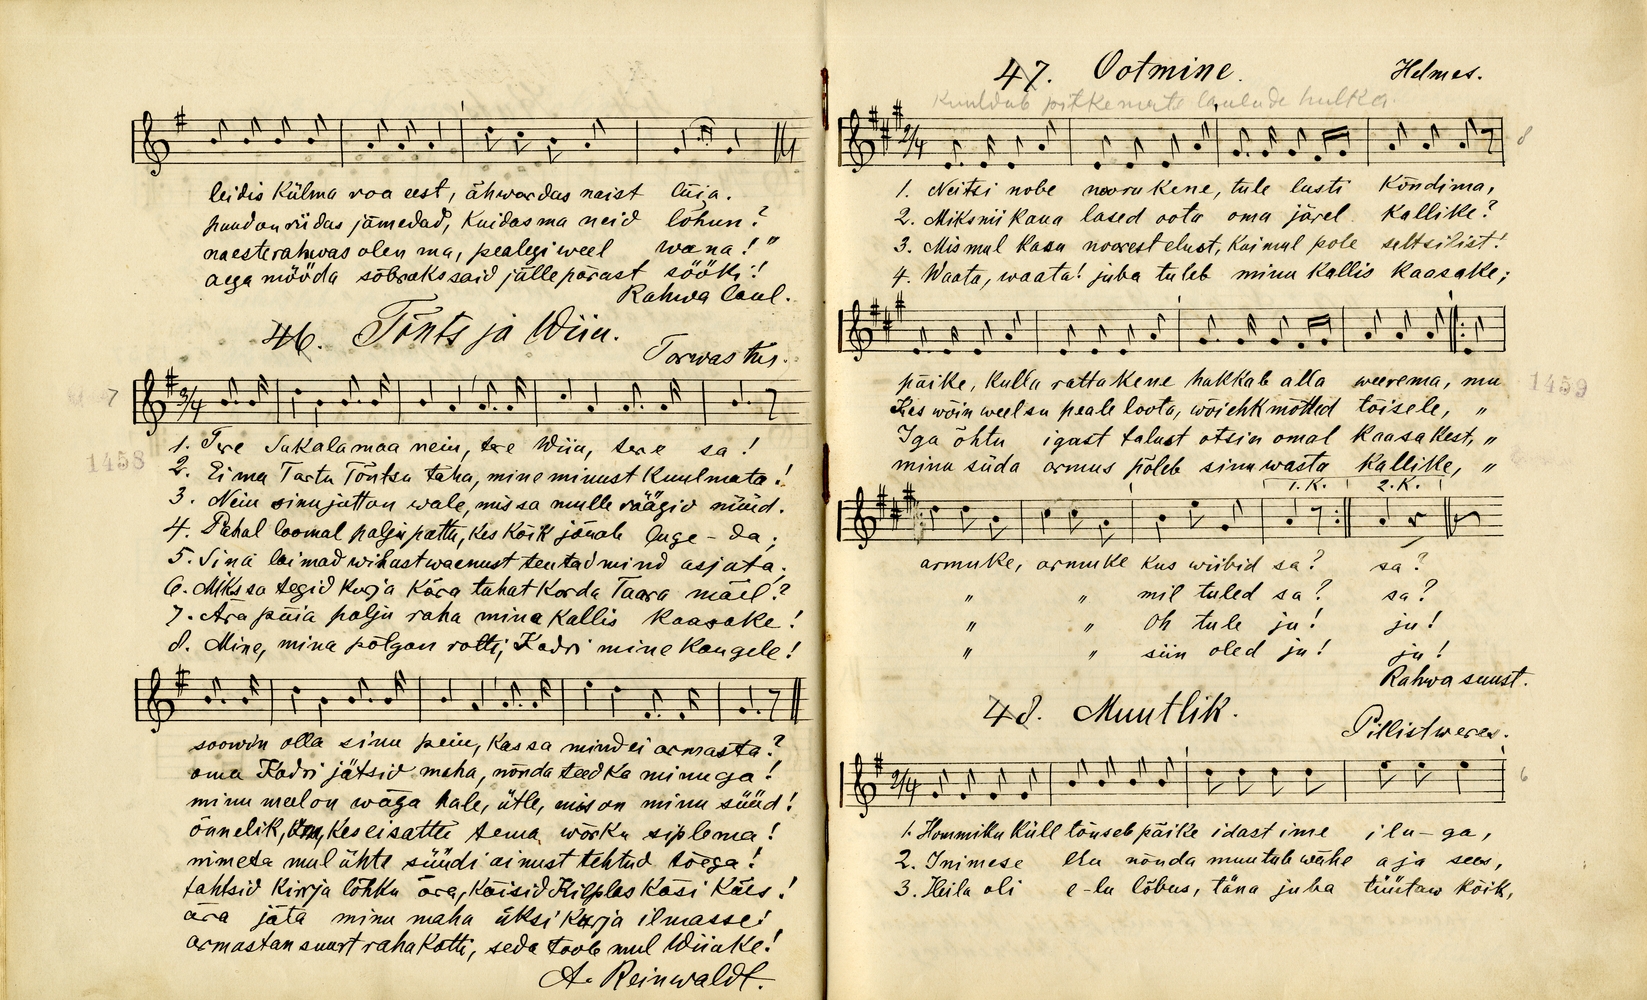 leidis külma roa eest, ähwardas naist lüia.
puud on riidas jämedad, kuidas ma neid lõhun?
naesterahwas olen ma, pealegi weel wana!"
aega mööda sõbraks said jälle pärast sööki!
Rahwa laul.
46. Tõnts ja Wiiu.
Torwastus.
7
3/4
1. Tere Sakalamaa neiu, tere Wiiu, tere sa!
1458
2. Ei ma Tartu Tõntsu taha, mine minust kuulmata!
3. Neiu sinu juttu on wale, mis sa mulle räägid nüüd.
4. Pahal loomal palju pattu, kes kõik jõuab luge-da;
5. Sina laimad wihast waenust teutad mind asjata;
6. Miks sa tegid kurja kära tahat korda Taara mäel?
7. Ära püia palju raha mina kallis kaasake!
8. Mine, mina põlgan rotti, Kadri mine kaugele!
soowin olla sinu peiu, kas sa mind ei armasta?
oma Kadri jätsid maha, nõnda teed ka minuga!
minu meel on wäga hale, ütle, mis on minu süüd!
õnnelik, kes ei sattu tema wõrku siplema!
nimeta mul ühte süüdi ainust tehtud tõega!
tahtsid kirja lõhku ära, käisid Kilplas käsi käes!
ära jäta minu maha üksi kurja ilmasse!
armastan suurt raha kotti, seda toob mul Wiiuke!
A. Reinwaldt.
47. Ootmine.
Helmes.
kuuldub pitkemate laulude hulka.
2/4
8
1. Neitsi nobe noorukene, tule lusti kõndima,
2. Miks nii kaua lased oota oma järel kallike?
3. Mis mul kasu noorest elust, kui mul pole seltsilist!
4. Waata, waata! juba tuleb minu kallis kaasake;
päike, kulla rattakene hakkab alla weerema, mu
1459
Kes wõin weel su peale loota, wõi ehk mõtled tõisele, "
Iga õhtu igast talust otsin omal kaasakest, "
minu süda armus põleb sinu wasta kallike, "
1. K. 2. K.
armuke, armuke kus wiibid sa? sa?
" " mil tuled sa? sa?
" " Oh tule ju! ju!
" " siin oled ju! ju!
Rahwa suust.
48. Muutlik.
Pillistweres.
2/4
6
1. Hommiku küll tõuseb päike idast ime ilu-ga,
2. Inimese elu nõnda muutub wähe aja sees,
3. Heila oli e-lu lõbus, täna juba tüütaw kõik,